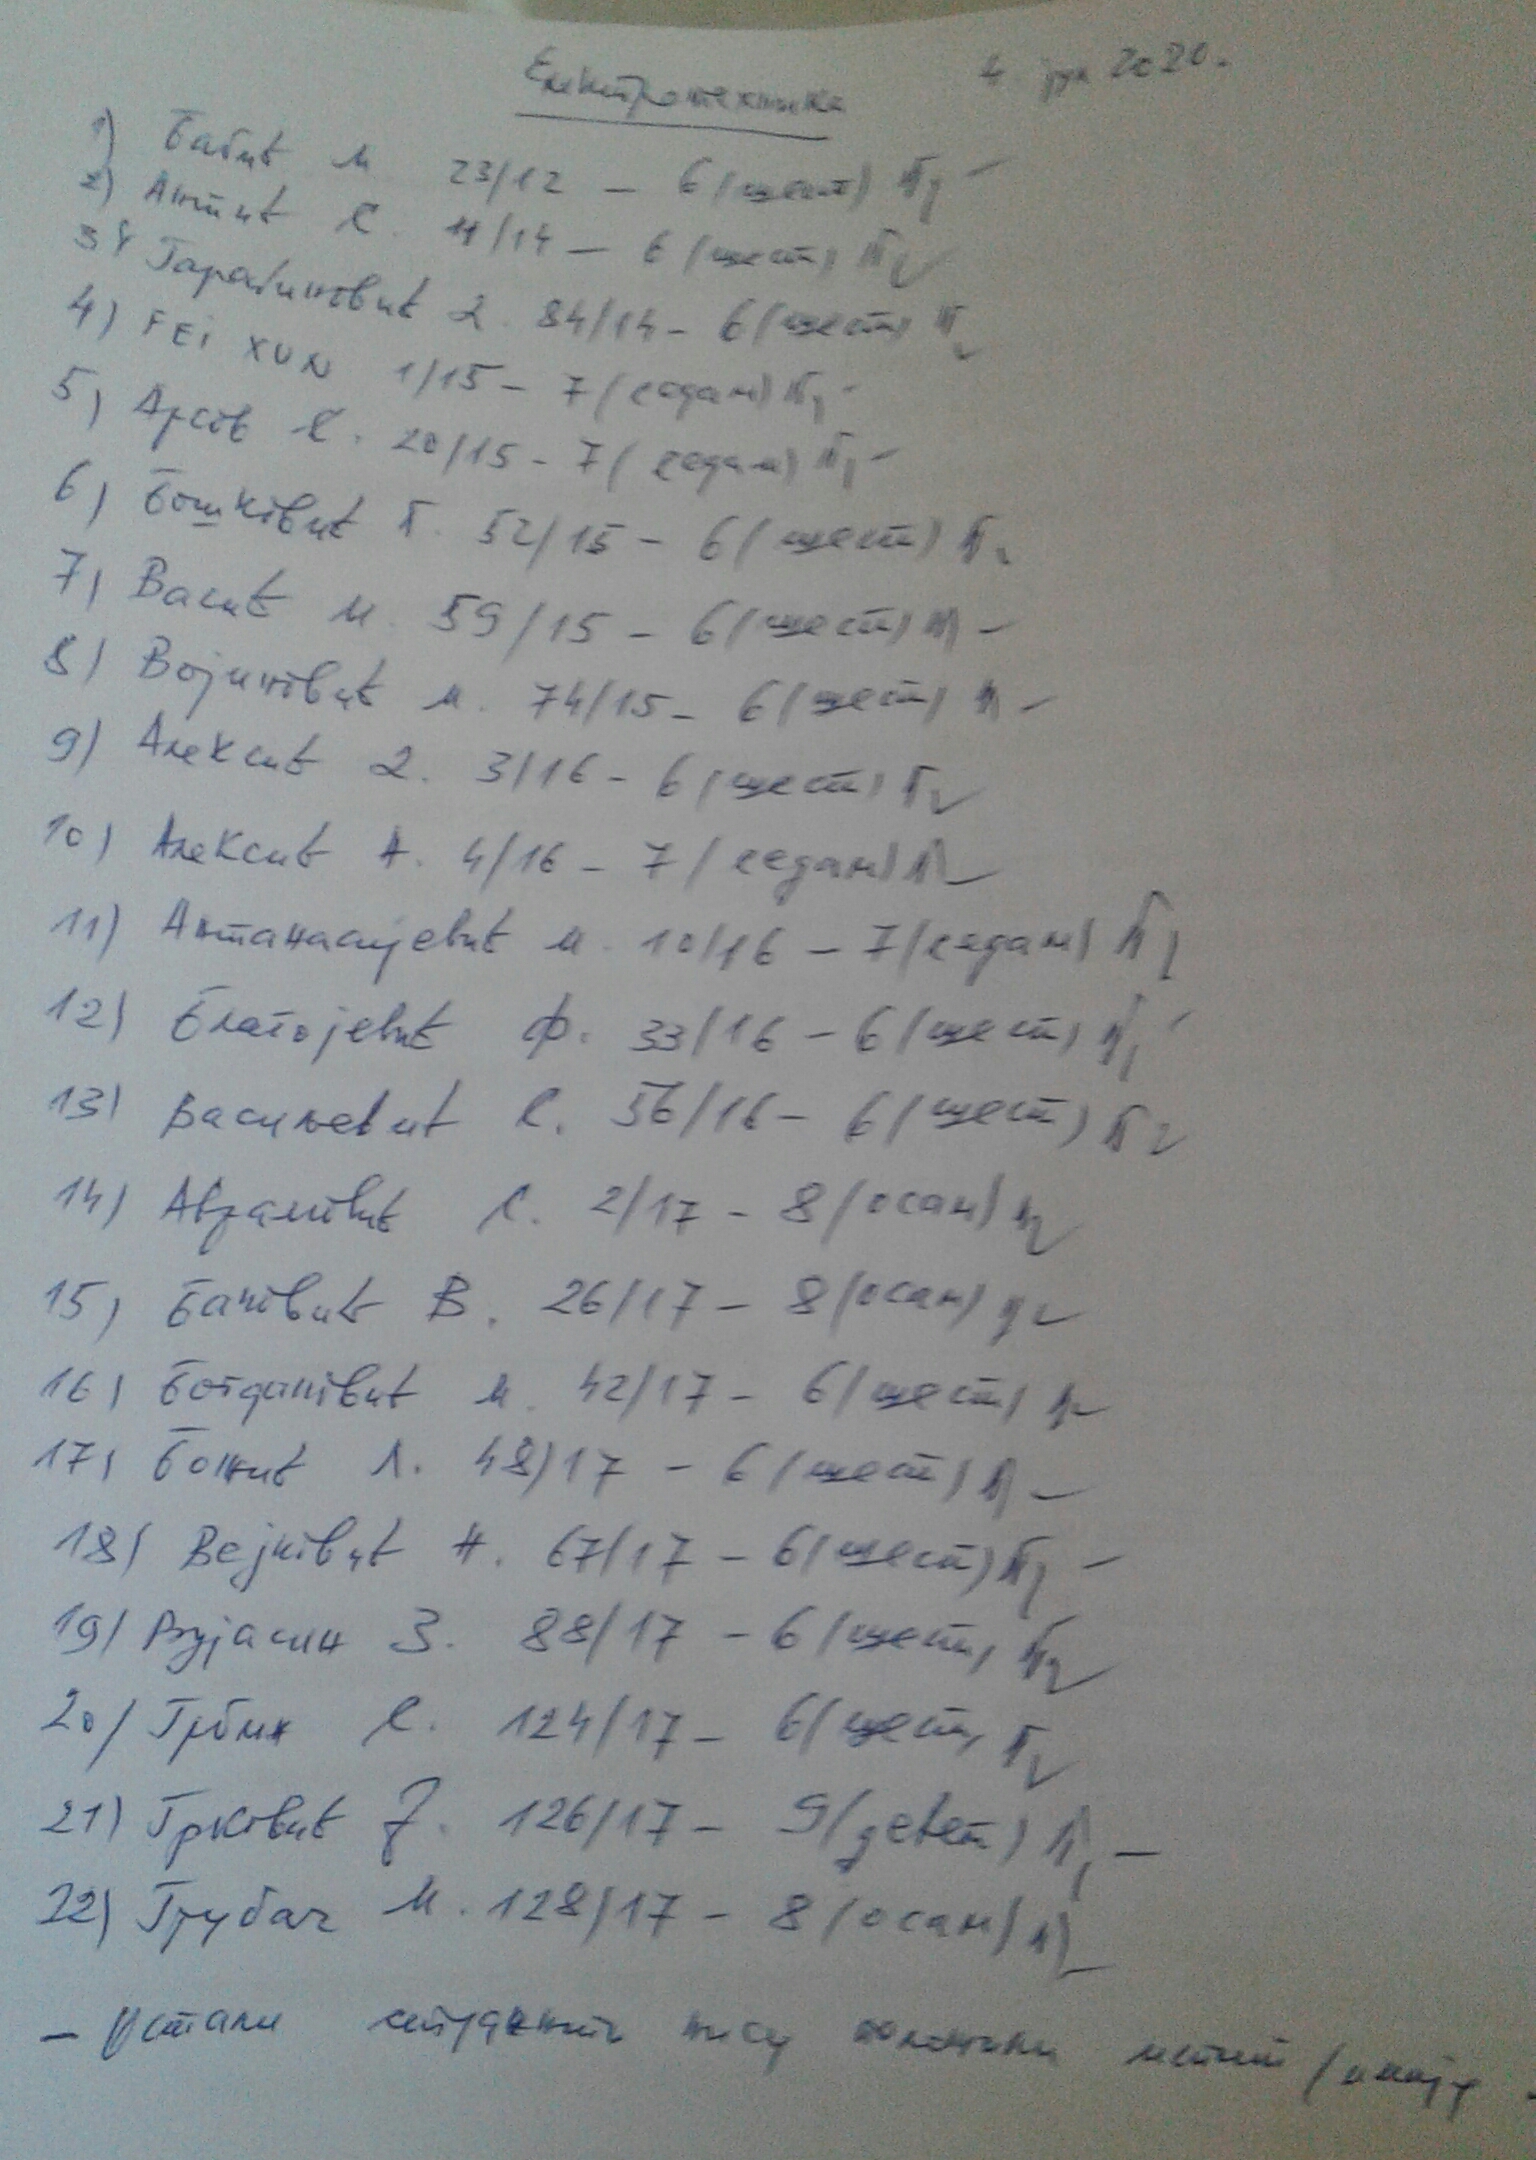 Електротехника 4. јун 2020.
1) Бабић М. 23/12 – 6 (шест)
2) Антић С. 11/14 – 6 (шест)
3) Гарабиновић Д. 84/14 – 6 (шест)
4) FEI XUN 1/15 – 7 (седам)
5) Арсов С. 20/15 – 7 (седам)
6) Бошковић П. 52/15 – 6 (шест)
7) Васић М. 59/15 – 6 (шест)
8) Војиновић М. 74/15 – 6 (шест)
9) Алексић Д. 3/16 – 6 (шест)
10) Алексић А. 4/16 – 7 (седам)
11) Антанасијевић М. 10/16 – 7 (седам)
12) Благојевић Ф. 33/16 – 6 (шест)
13) Васиљевић С. 56/16 – 6 (шест)
14) Аврамовић С. 2/17 – 8 (осам)
15) Баковић В. 26/17 – 8 (осам)
16) Богдановић М. 42/17 – 6 (шест)
17) Божић Л. 48/17 – 6 (шест)
18) Вејновић Н. 67/17 – 6 (шест)
19) Вујасин З. 88/17 – 6 (шест)
20) Грбић С. 124/17 – 6 (шест)
21) Грковић Ј. 126/17 – 9 (девет)
22) Грубач М. 128/17 – 8 (осам)
– Остали студенти нису положили испит (имају